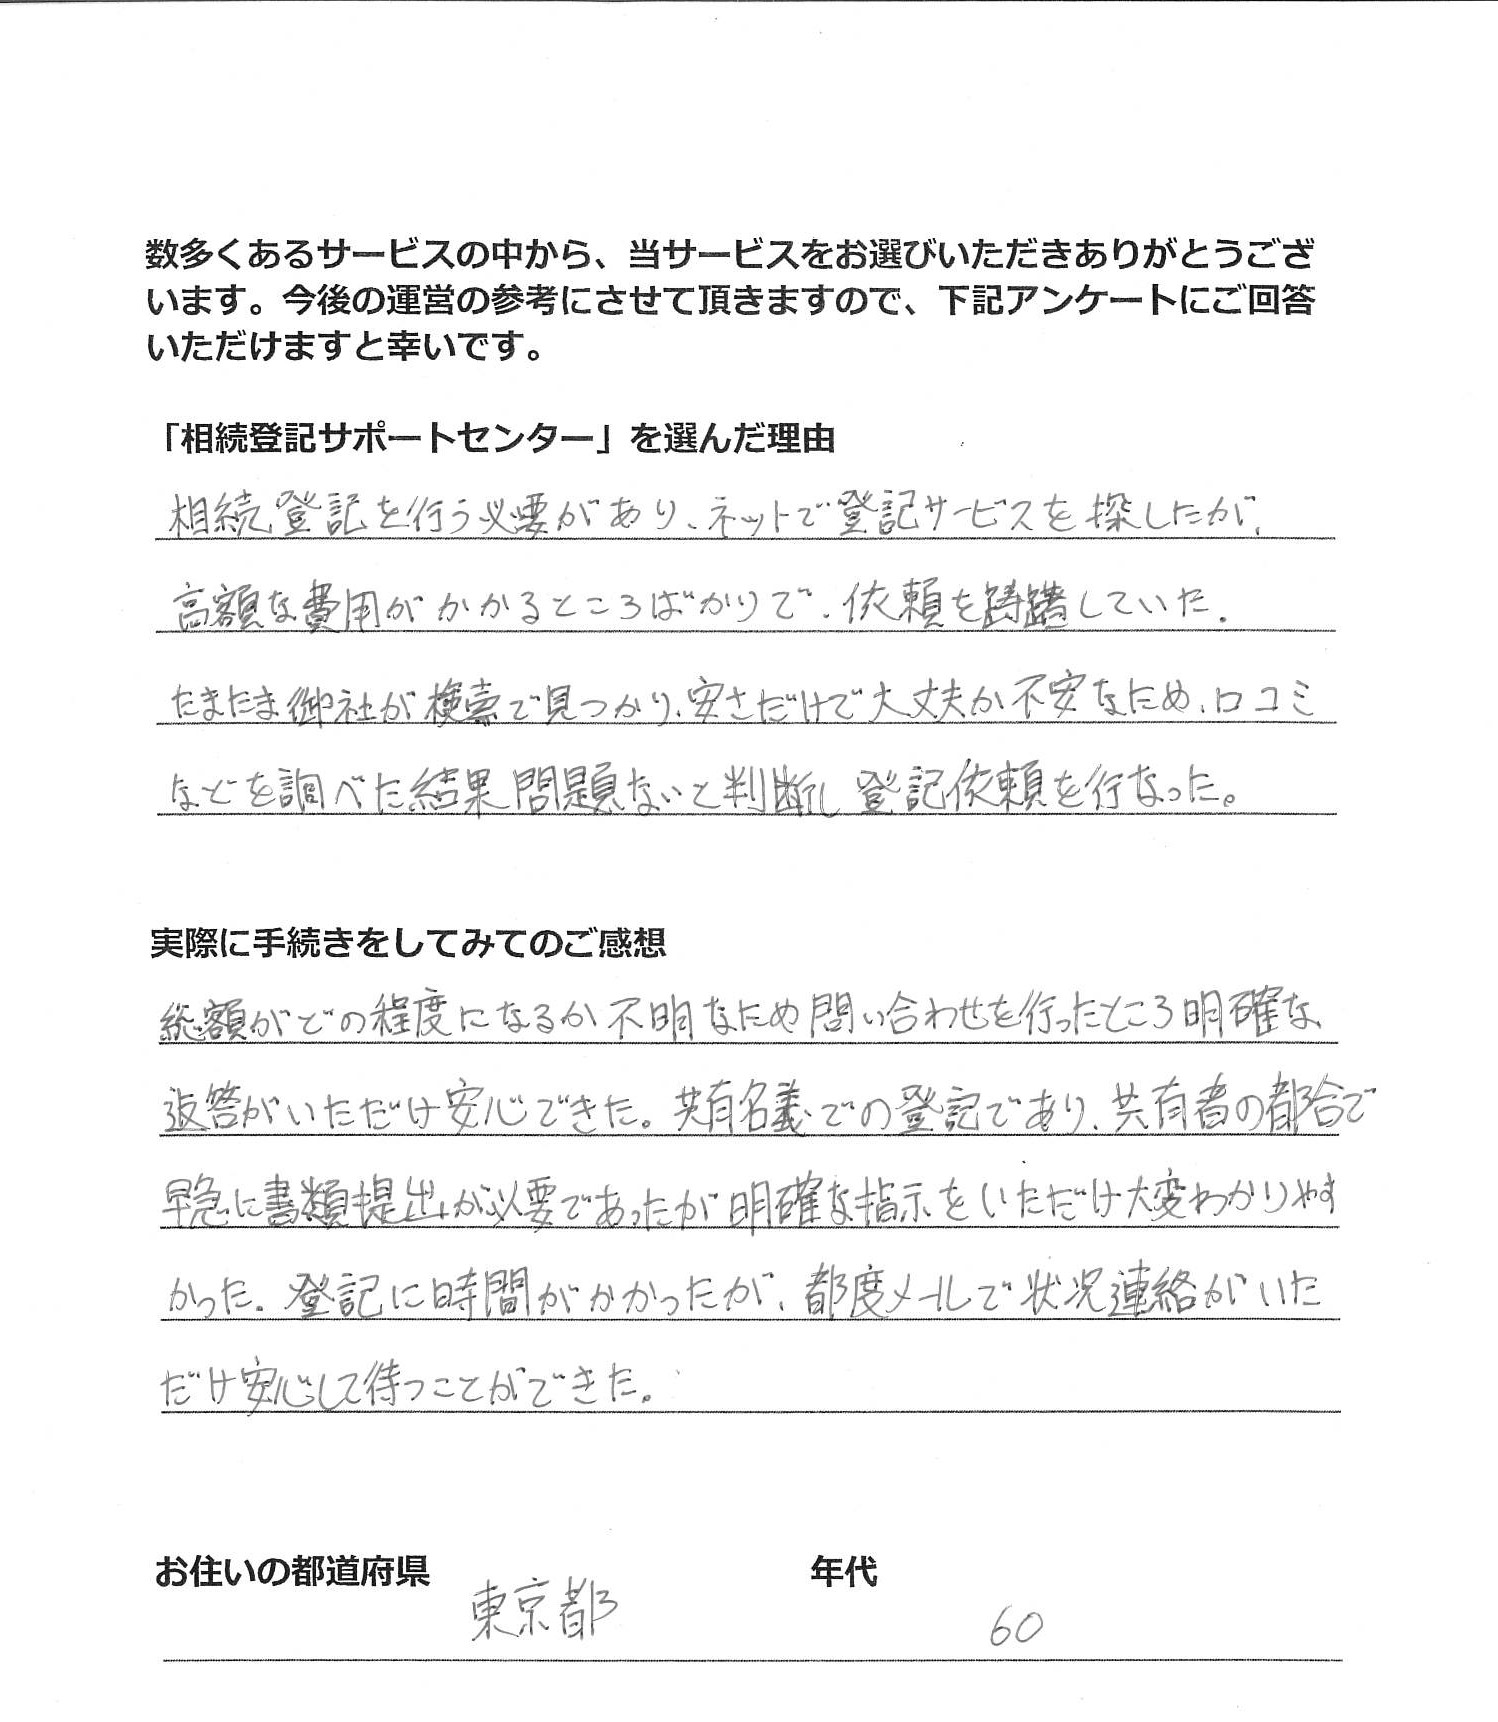 数多くあるサービスの中から、当サービスをお選びいただきありがとうござ
います。今後の運営の参考にさせて頂きますので、下記アンケートにご回答
いただけますと幸いです。
「相続登記サポートセンター」を選んだ理由
相続登記を行う必要があり、ネットで登記サービスを探したが、
高額な費用がかかるところばかりで、依頼を躊躇していた。
たまたま御社が検索で見つかり、安さだけで大丈夫か不安なため、口コミ
などを調べた結果問題ないと判断し登記依頼を行なった。
実際に手続きをしてみてのご感想
総額がどの程度になるか不明なため問い合わせを行ったところ明確な
返答がいただけ安心できた。共有名義での登記であり、共有者の都合で
早急に書類提出が必要であったが明確な指示をいただけ大変わかりやす
かった。登記に時間がかかったが、都度メールで状況連絡がいた
だけ安心して待つことができた。
お住いの都道府県 年代
東京都 60